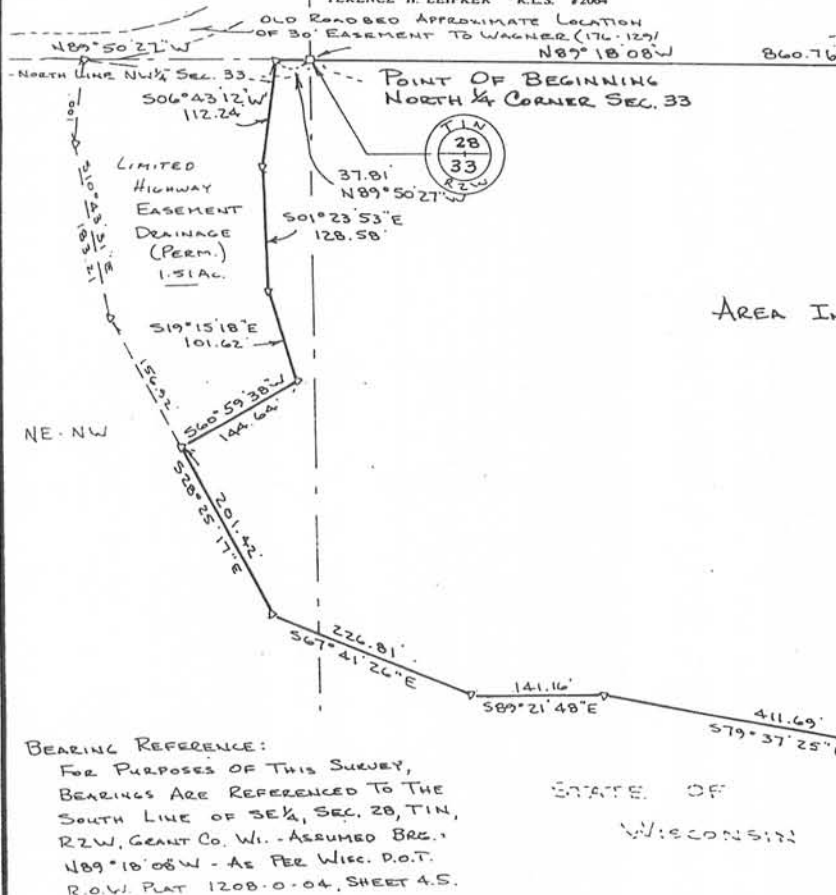 OLD ROADBED APPROXIMATE LOCATION
OF 30' EASEMENT TO WAGNER (176-129)
N89°50'27"W
N89°18'08"W
860.76
NORTH LINE NW¼ SEC. 33
POINT OF BEGINNING
NORTH ¼ CORNER SEC. 33
S06°43'12"W
112.24
T1N
28
33
R2W
37.81'
N89°50'27"W
LIMITED
HIGHWAY
EASEMENT
DRAINAGE
(PERM.)
1.51 AC.
S01°23'53"E
128.58'
S10°43'51"E
183.21
AREA
S19°15'18"E
101.62'
156.92'
S60°59'38"W
144.64'
NE-NW
201.42'
S28°25'17"E
226.81'
S67°41'26"E
141.16'
S89°21'48"E
411.69'
S79°37'25"
BEARING REFERENCE:
FOR PURPOSES OF THIS SURVEY,
BEARINGS ARE REFERENCED TO THE
SOUTH LINE OF SE¼, SEC. 28, T1N,
R2W, GRANT CO. WI. - ASSUMED BRG.:
N89°18'08"W - AS PER WISC. D.O.T.
R.O.W. PLAT 1208-0-04, SHEET 4.5.
STATE OF
WISCONSIN